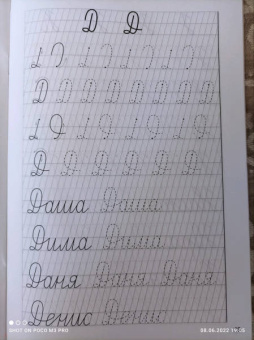 Д Д
Д Д Д Д Д Д Д Д
Д Д Д Д Д Д
Даша Даша
Дима Дима
Даня Даня Даня
Денис Денис
SHOT ON POCO M3 PRO
08.06.2022 19:05